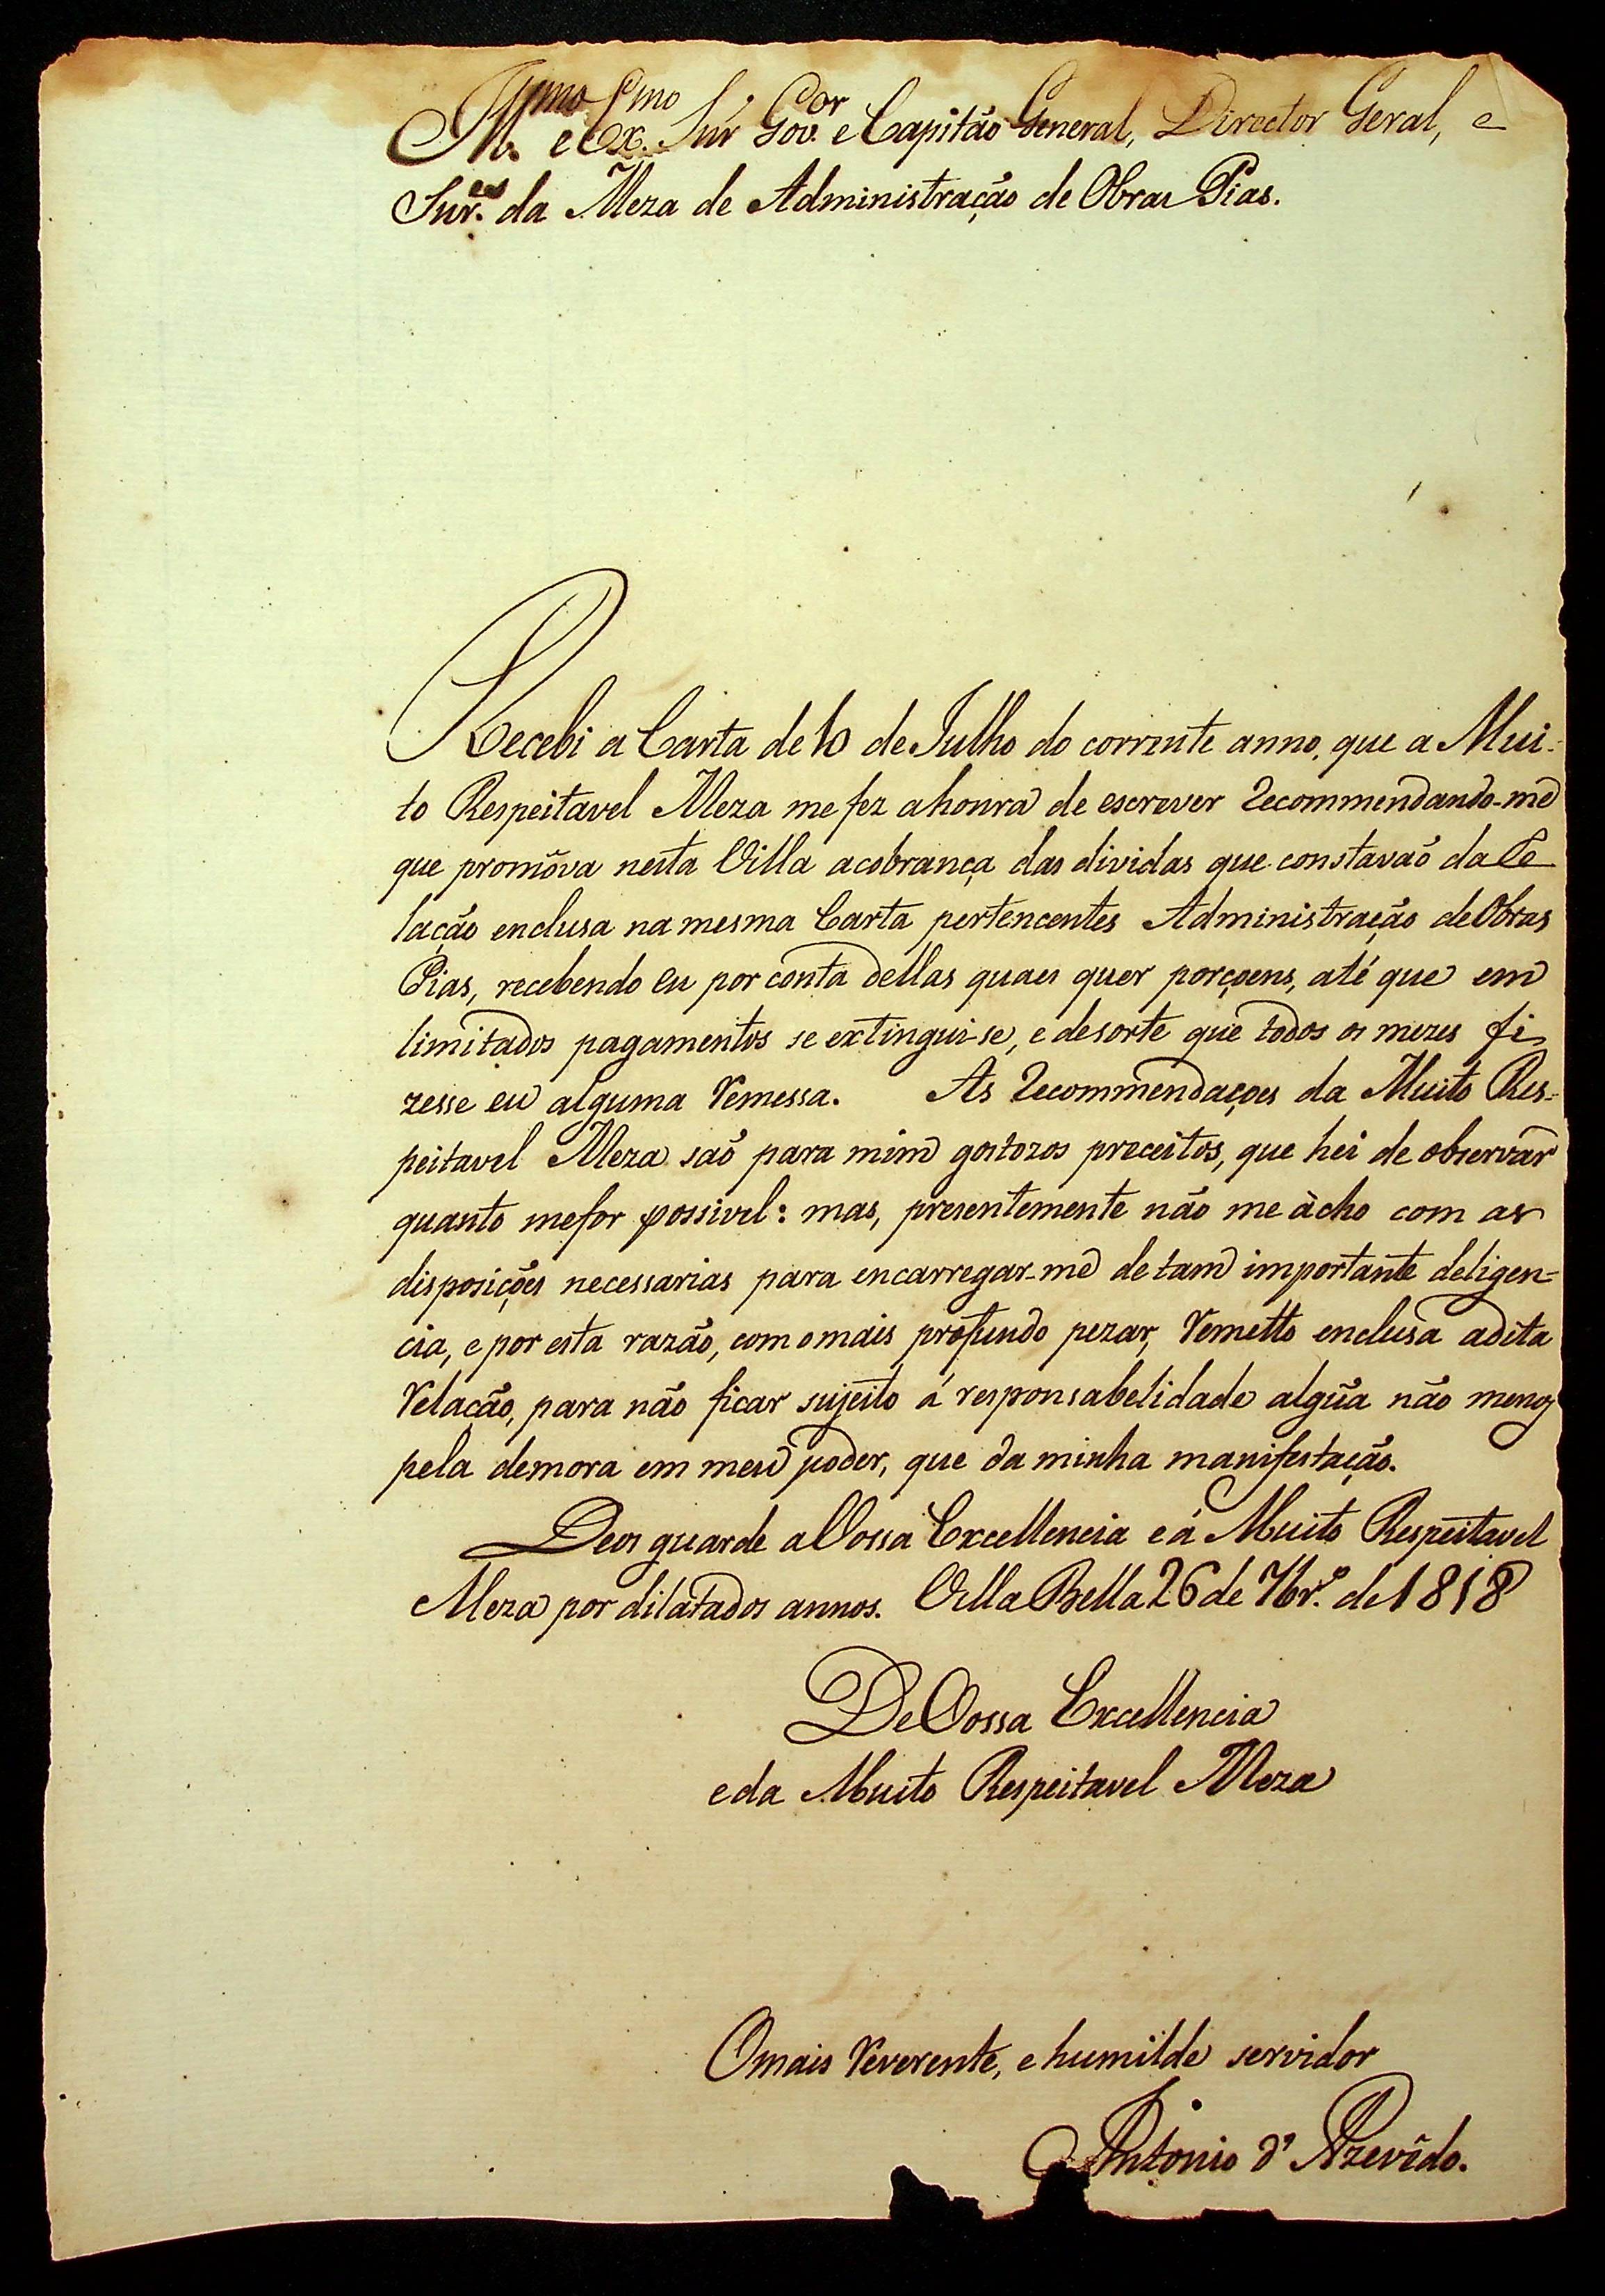 Ill.mo e Ex.mo Snr̃ Gov.or e Capitão General, Director Geral, e
Snr.es da Meza de Administração de Obras Pias.
Recebi a Carta de 10 de Julho do corrente anno, que a Mui-
to Respeitavel Meza me fez a honra de escrever Recommendando-me
que promôva nesta Villa a cobrança das dividas que constavaõ da Re
lação enclusa na mesma Carta pertencentes Administração de Obras
Pias, recebendo eu por conta dellas quaes quer porçoens, até que em
limitados pagamentos se extingui-se, e desorte que todos os mezes fi
zesse eu alguma Remessa. As Recommendaçoes da Muito Res-
peitavel Meza saõ para mim gostozos preceitos, que hei de observar
quanto me for possivel: mas, presentemente não me àcho com as
disposições necessarias para encarregar-me de tam importante deligen-
cia, e por esta razão, com o mais profundo pezar, Remetto enclusa a dita
Relação, para não ficar sujeito á responsabelidade algũa não menos
pela demora em meu poder, que da minha manifestação.
Deos guarde a Vossa Excellencia e á Muito Respeitavel
Meza por dilatados annos. Villa Bella 26 de 7br.º de 1818
De Vossa Excellencia
e da Muito Respeitavel Meza
O mais Reverente, e humilde servidor
Antonio d' Azevêdo.